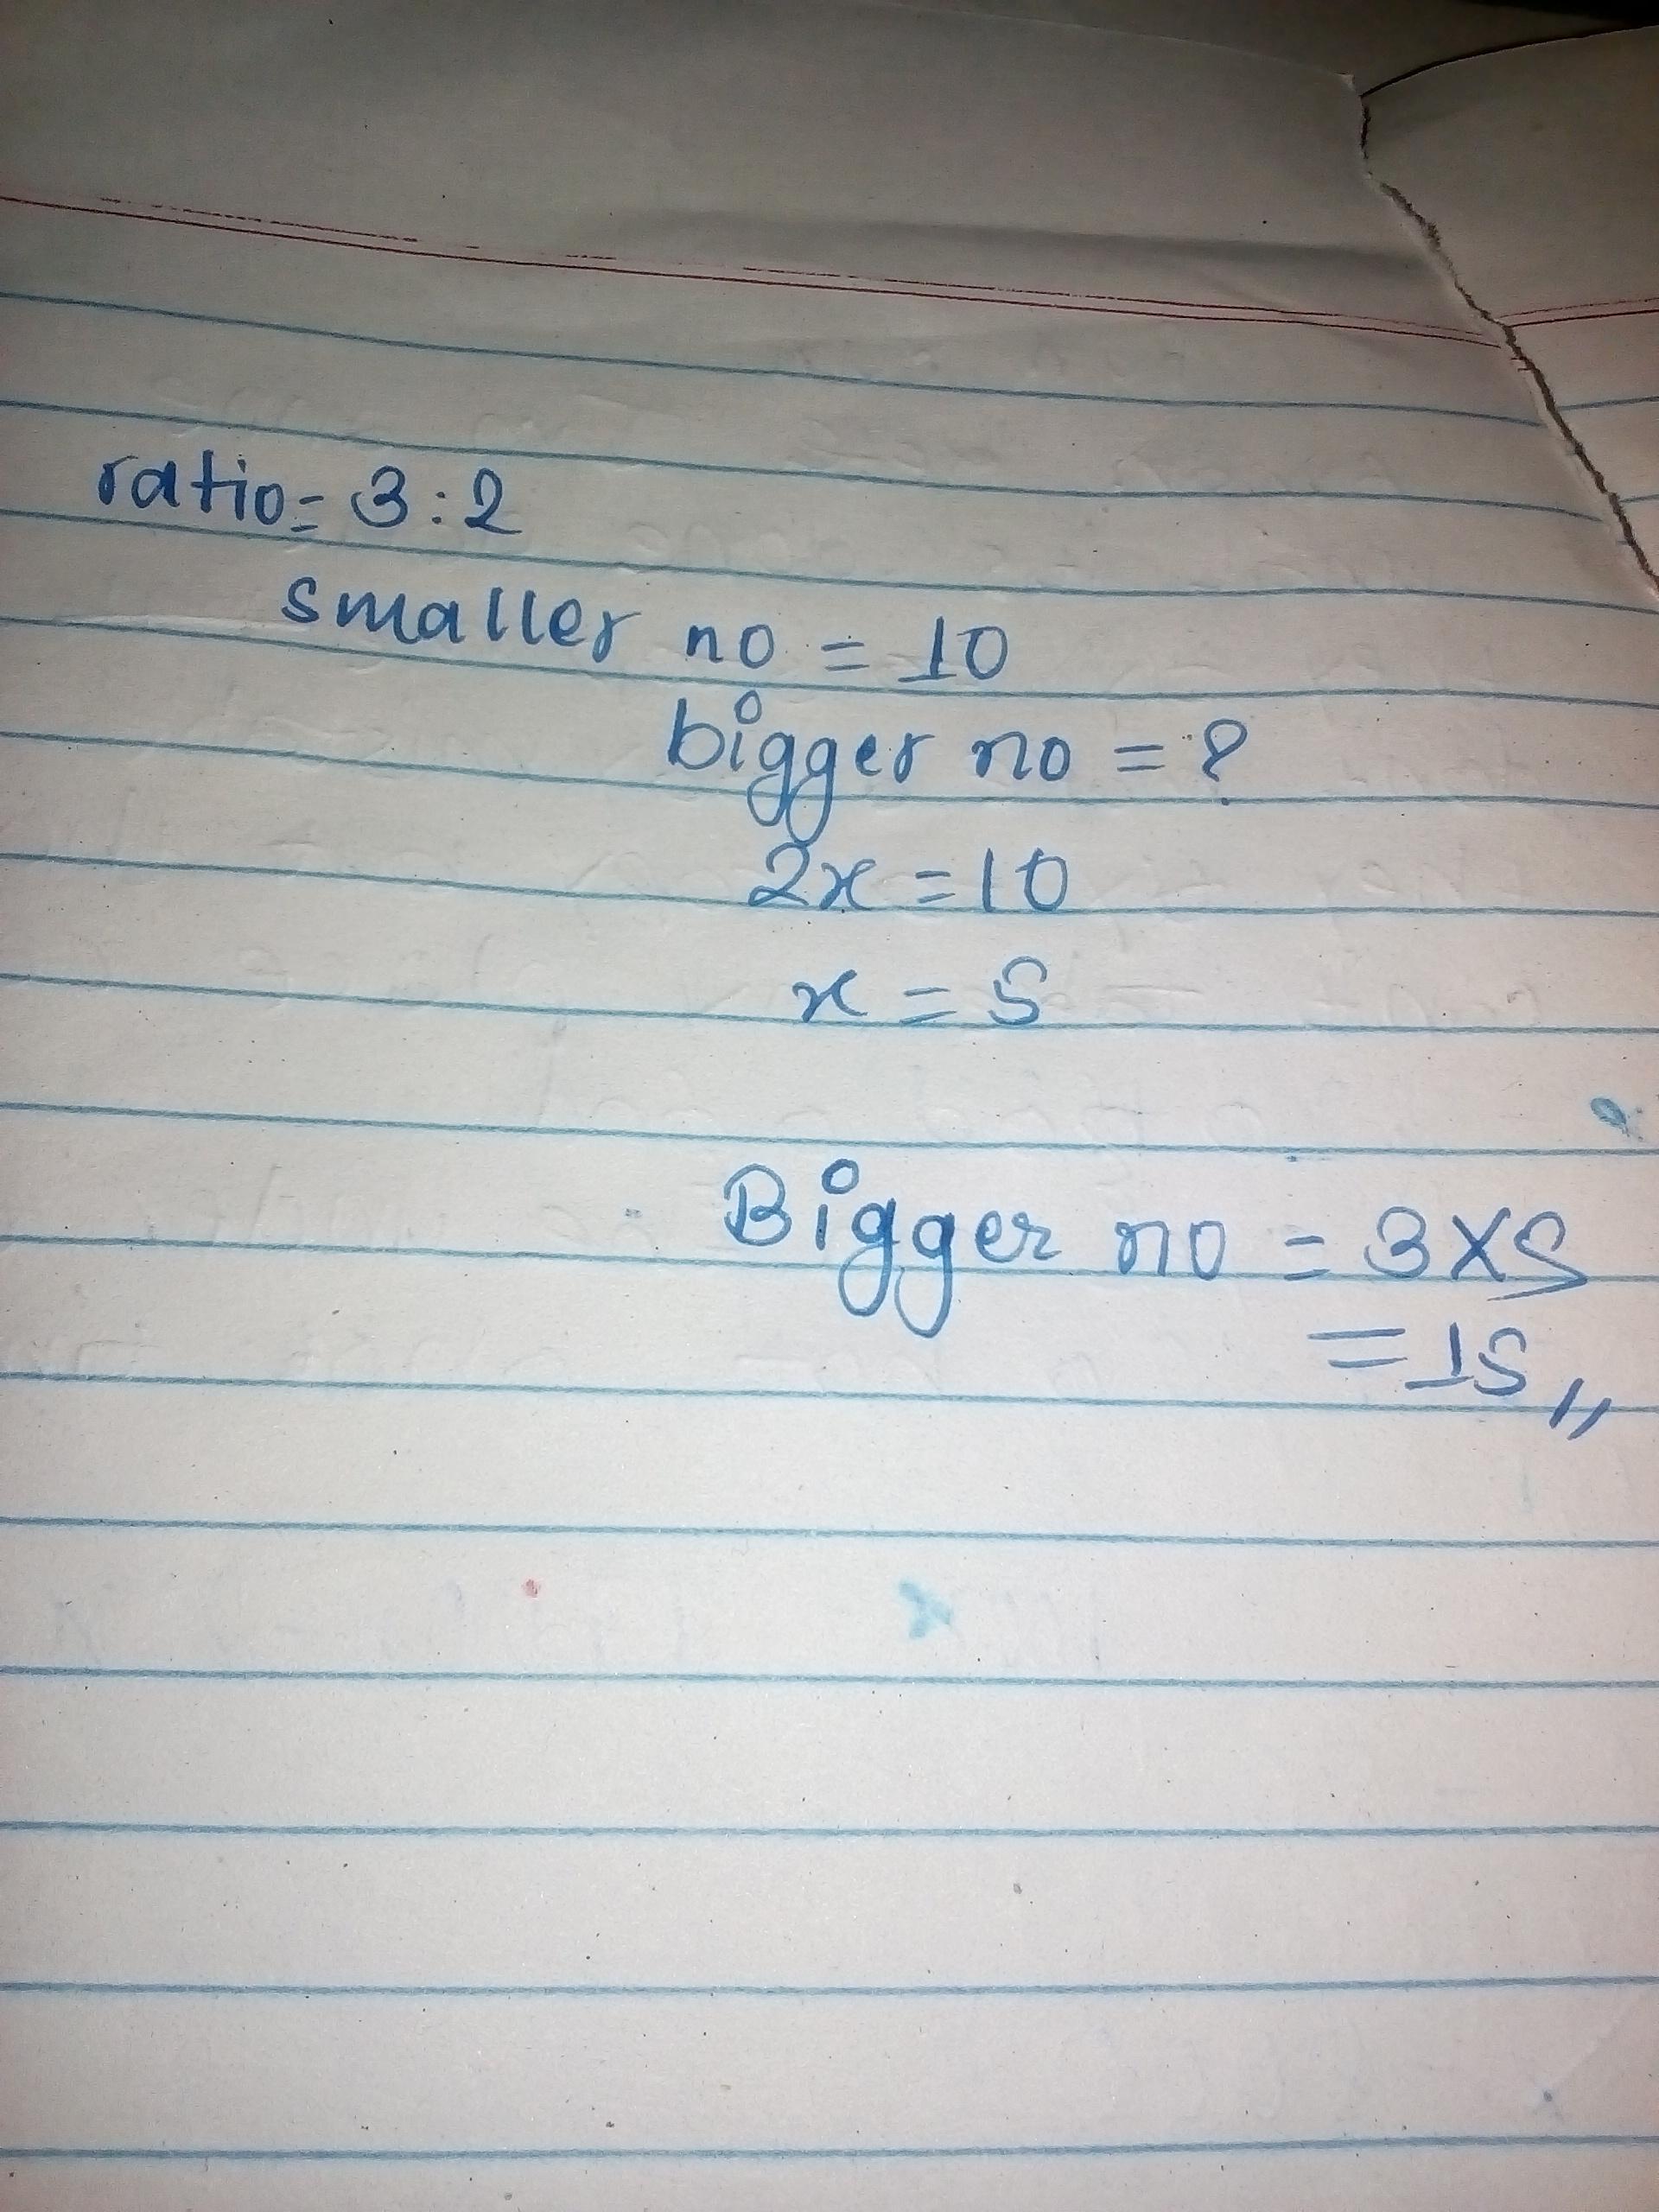 ratio = 3 : 2
smaller no = 10
bigger no = ?
2x = 10
x = 5
Bigger no = 3 x 5
= 15 //